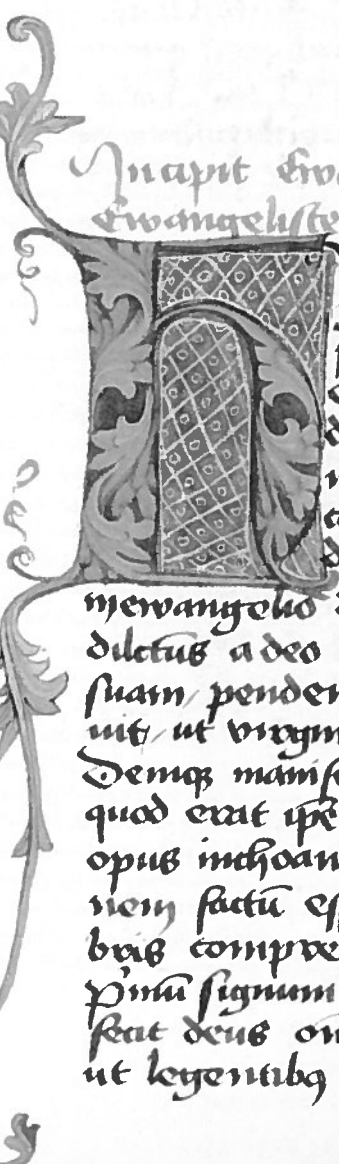 Incipit Ewa
Ewangeliste
H
mewangelio
dilectus a deo
suam / penden
uit / ut virgin
Deniqz manife
quod erat ip̄e
opus inchoan
nem factū es
bris compre
P'mū signum
fecit deus on
ut legentibꝫ